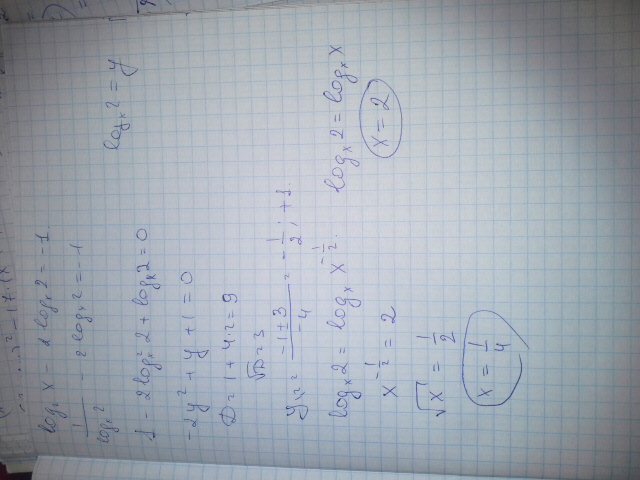 log₂ x - 2 logₓ 2 = -1
1/logₓ 2 - 2 logₓ 2 = -1
logₓ 2 = y
1 - 2 logₓ² 2 + logₓ 2 = 0
-2y² + y + 1 = 0
D = 1 + 4·2 = 9
√D = 3
y₁,₂ = (-1 ± 3)/-4 = -1/2 ; +1
logₓ 2 = logₓ x^(-1/2)
x^(-1/2) = 2
√x = 1/2
x = 1/4
logₓ 2 = logₓ x
x = 2